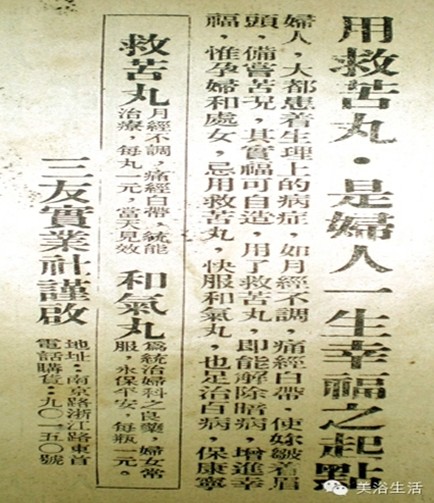 用救苦丸·是婦人一生幸福之起點
婦人，大都患着生理上的病症，如月經不調，痛經白帶，使妳皺着眉
頭，備嘗苦况，其實福可自造，用了救苦丸，即能解除暗病，增進幸
福，惟孕婦和處女，忌用救苦丸，快服和氣丸，也是治百病，保康寧
救苦丸
月經不調，痛經白帶，統能
治療，每丸一元，當天見效
和氣丸
爲統治婦科之良藥，婦女常
服，永保平安，每瓶一元。
三友實業社謹啟
地址：南京路浙江路東首
電話購貨：九〇一五〇號
美浴生活